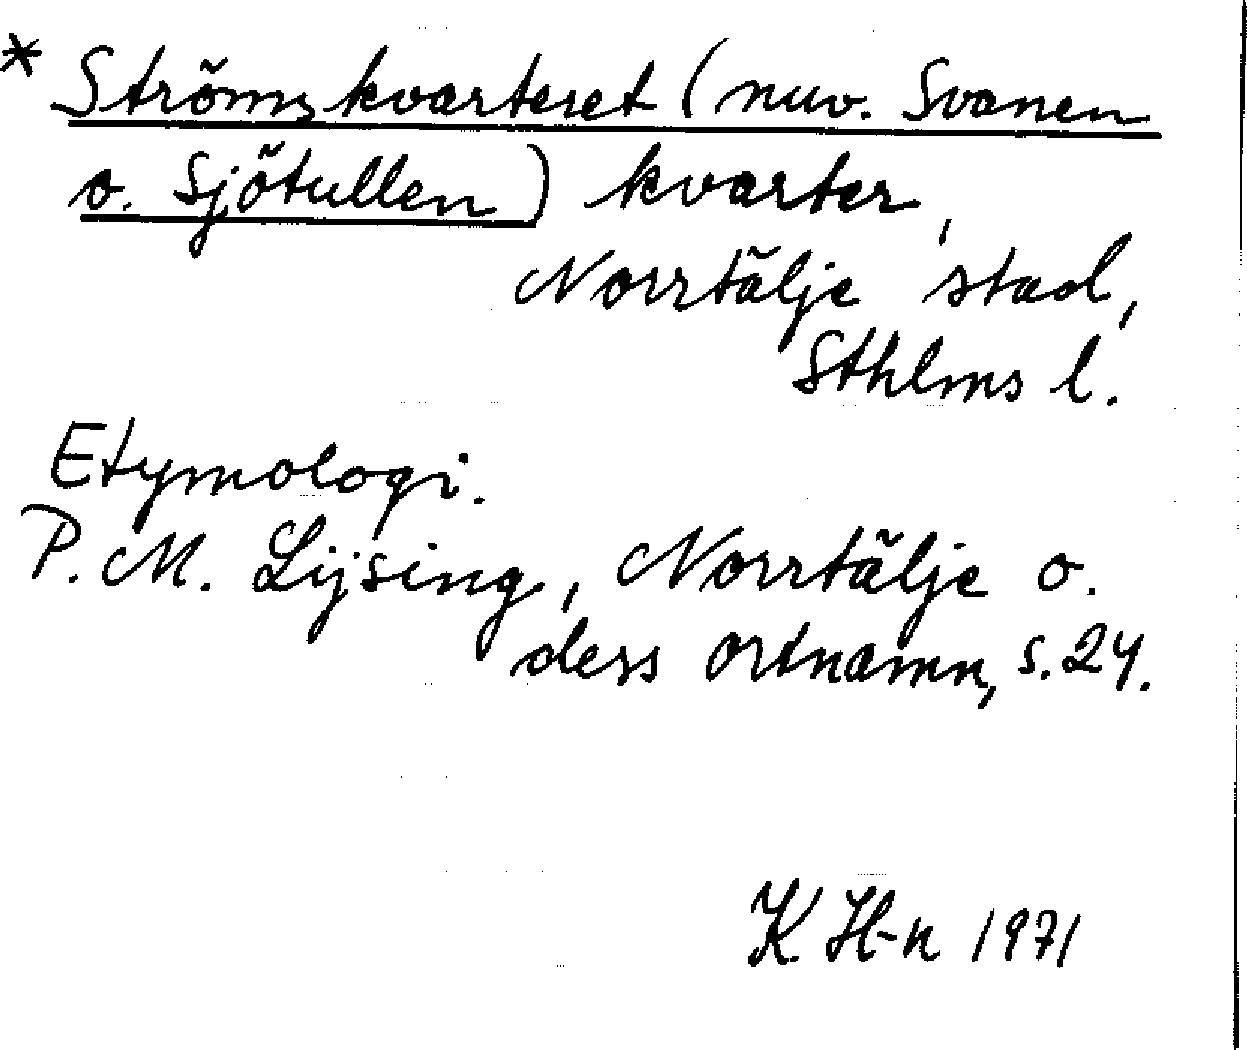 * Strömskvarteret (nuv. Svanen
o. Sjötullen) kvarter,
Norrtälje stad,
Sthlms l.
Etymologi.
P. M. Lijsing, Norrtälje o.
dess ortnamn, s. 24.
K H-n 1971